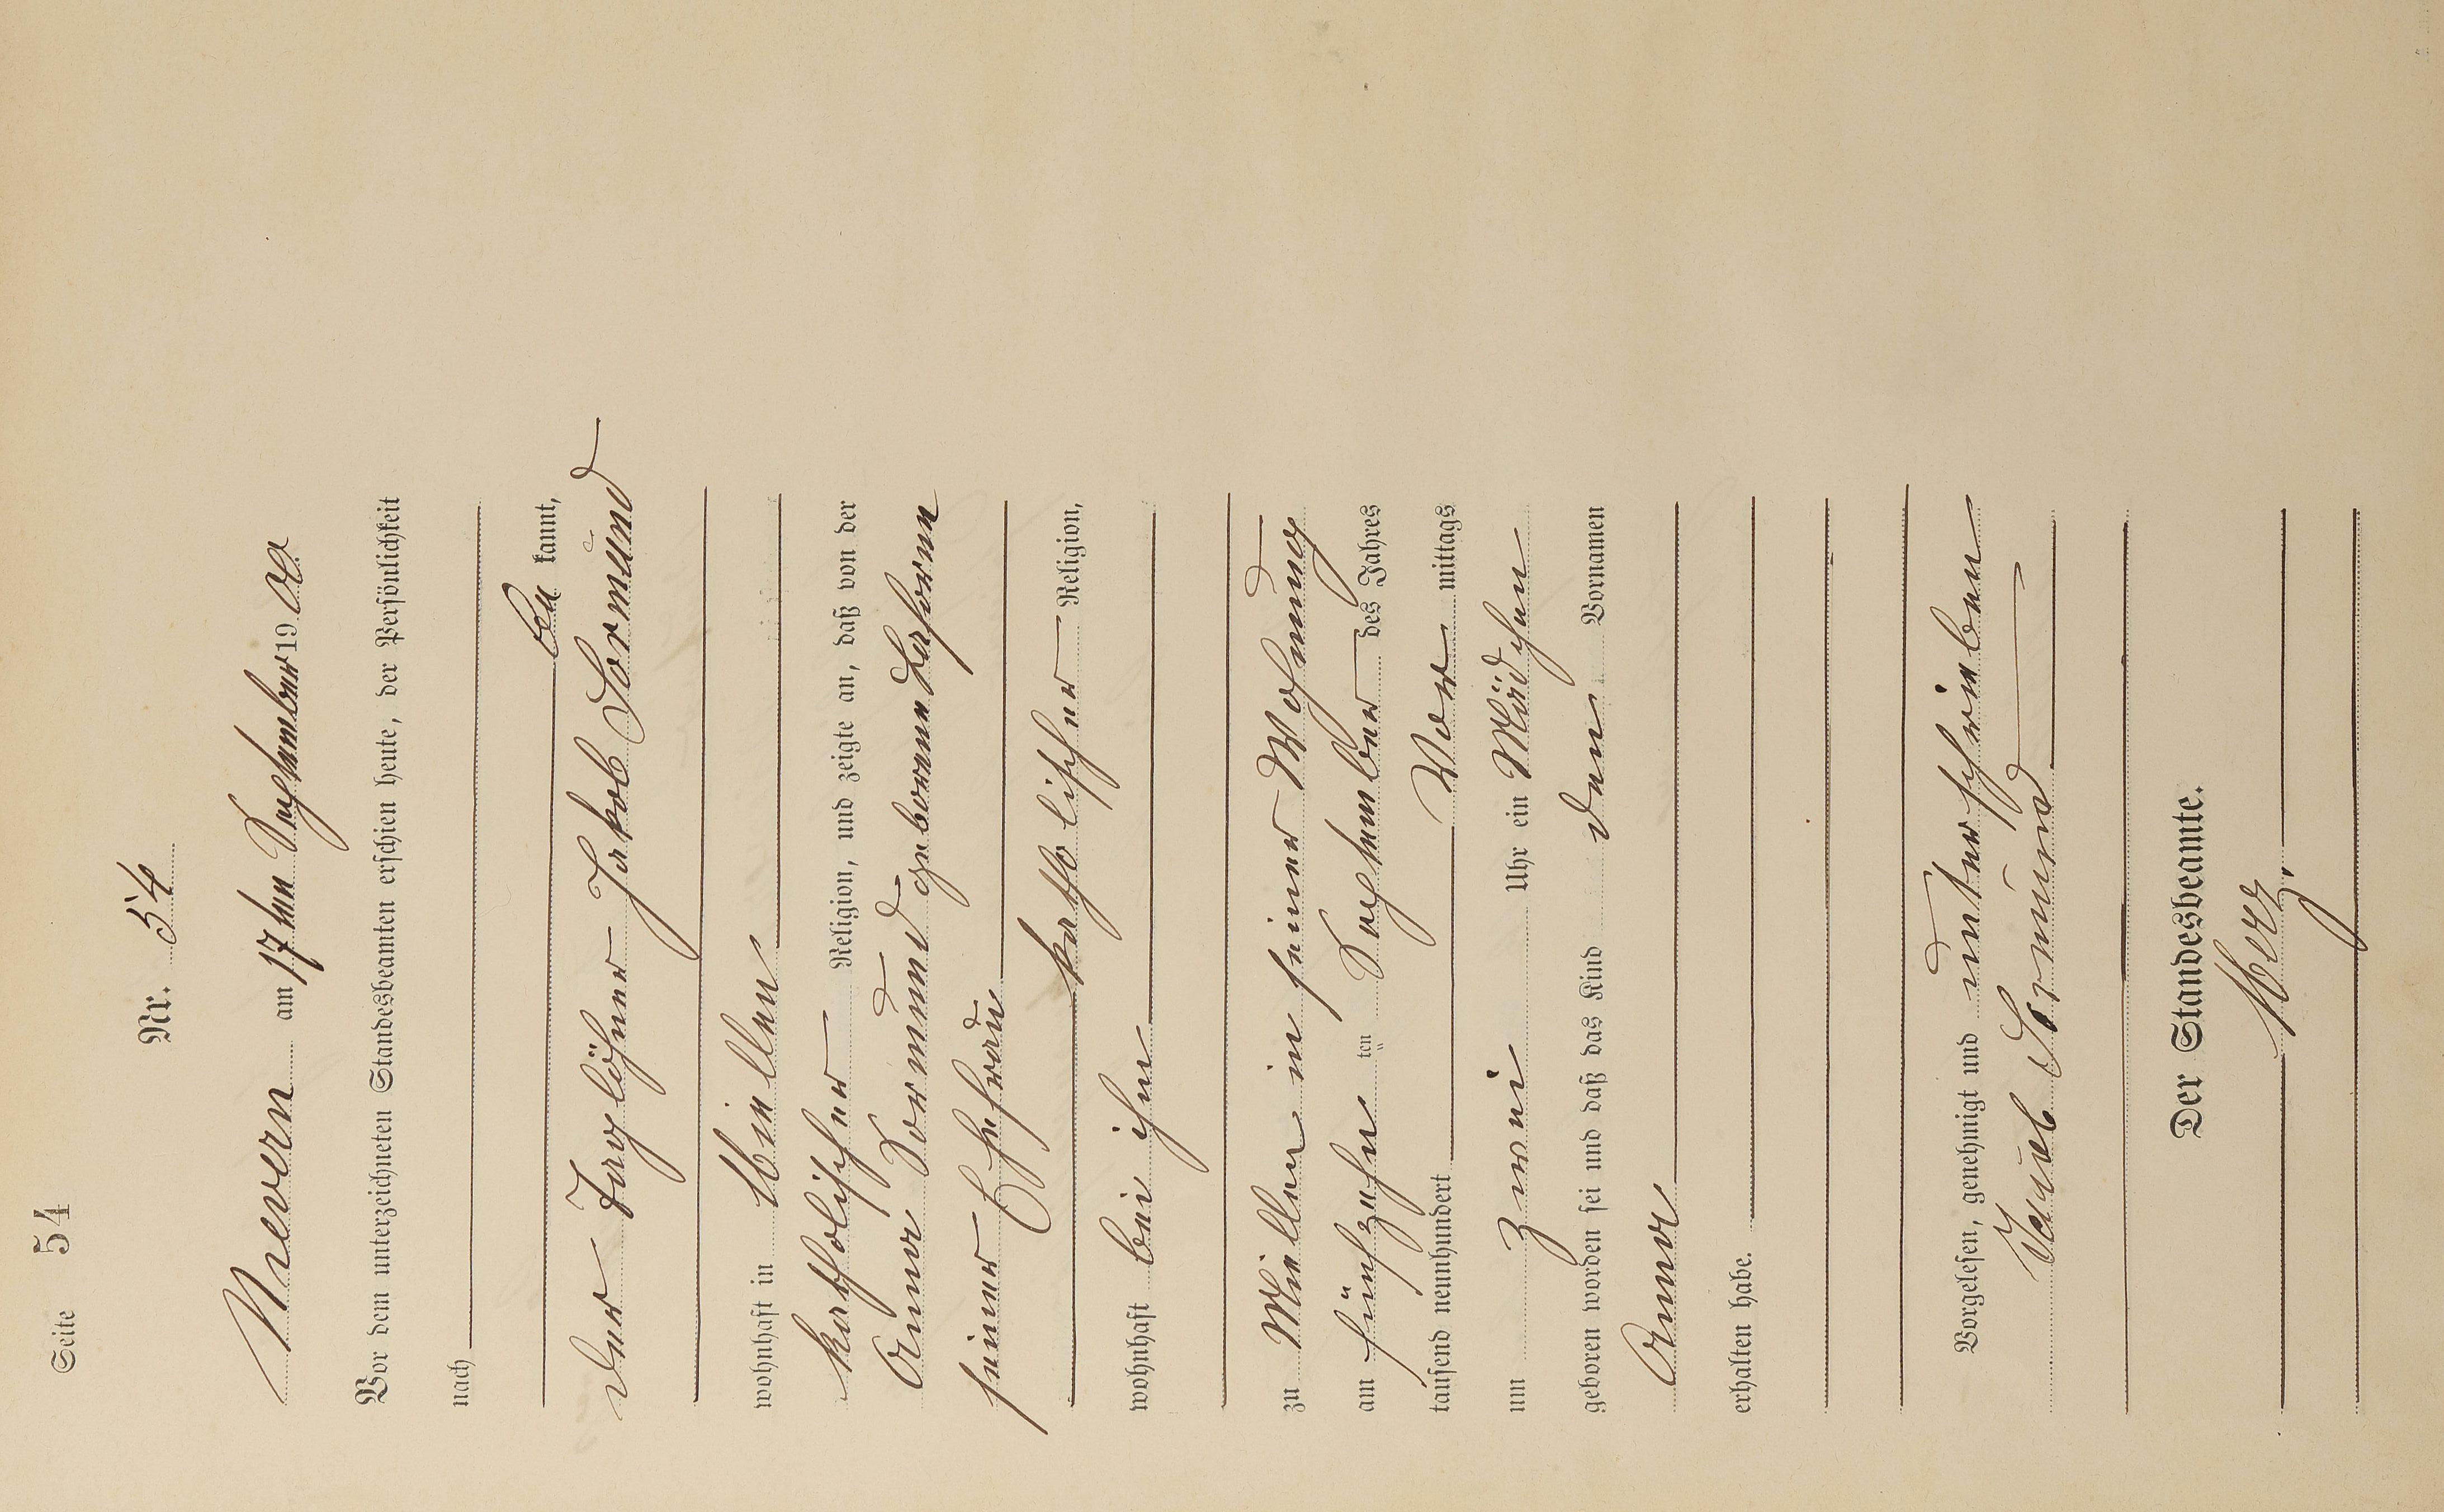 Seite 54
Nr. 54
Nievern am 17ten September 1900
Vor dem unterzeichneten Standesbeamten erschien heute, der Persönlichkeit
nach
be kannt,
der Taglöhner Jakob
wohnhaft in Miellen
katholischer Religion, und zeigte an, daß von der
Anna geborene
seiner Ehefrau
katholischer Religion,
wohnhaft bei ihm
zu Miellen in seiner Wohnung
am fünfzehn ten September des Jahres
tausend neunhundert Vor mittags
um zwei Uhr ein Mädchen
geboren worden sei und daß das Kind den Vornamen
Anna
erhalten habe.
Vorgelesen, genehmigt und unterschrieben
Jacob
Der Standesbeamte.